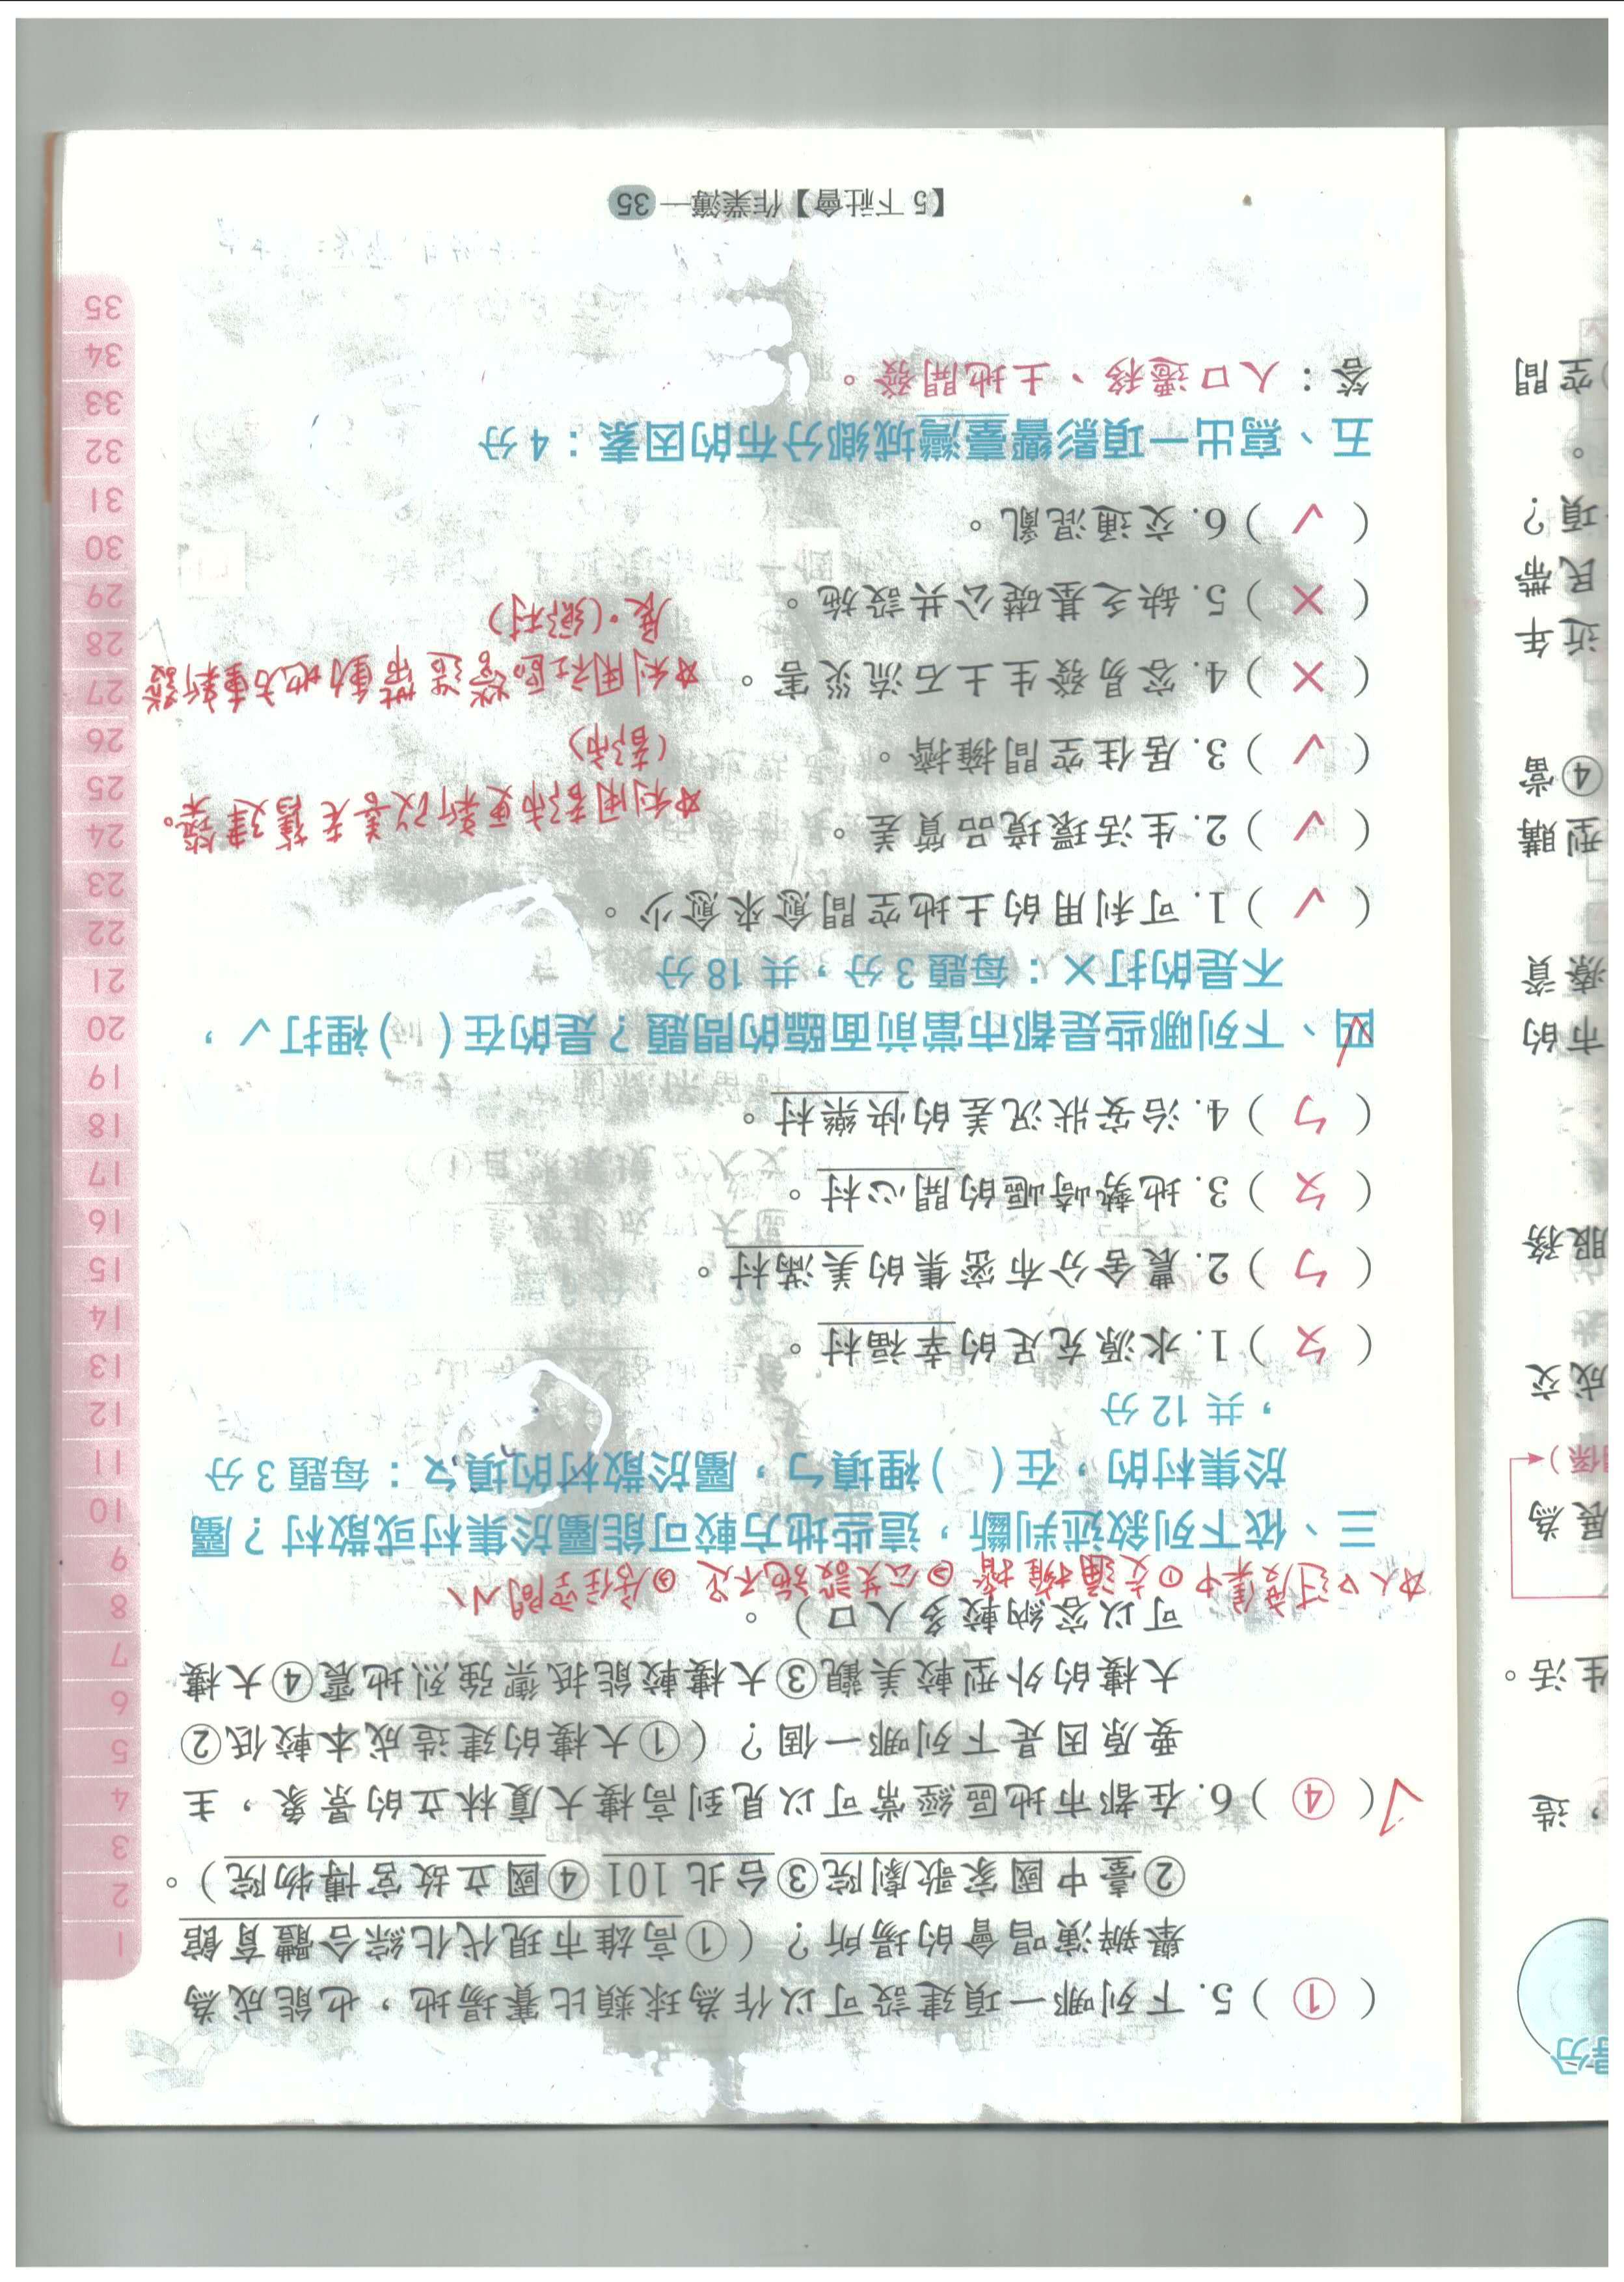 ( ① ) 5. 下列哪一項建設可以作為球類比賽場地，也能成為
舉辦演唱會的場所？（①高雄市現代化綜合體育館
②臺中國家歌劇院③台北101④國立故宮博物院）。
( ④ ) 6. 在都市地區經常可以見到高樓大廈林立的景象，主
要原因是下列哪一個？（①大樓的建造成本較低②
大樓的外型較美觀③大樓較能抵禦強烈地震④大樓
可以容納較多人口）。
☆人口过度集中①交通擁擠②公共設施不足③居住空間小
三、依下列敘述判斷，這些地方較可能屬於集村或散村？屬
於集村的，在（ ）裡填ㄅ，屬於散村的填ㄆ：每題3分
，共12分
( ㄆ ) 1. 水源充足的幸福村。
( ㄅ ) 2. 農舍分布密集的美滿村。
( ㄆ ) 3. 地勢崎嶇的開心村。
( ㄅ ) 4. 治安狀況差的快樂村。
四、下列哪些是都市當前面臨的問題？是的在（ ）裡打✓，
不是的打✕：每題3分，共18分
( ✓ ) 1. 可利用的土地空間愈來愈少。
( ✓ ) 2. 生活環境品質差。
☆利用都市更新改善老舊建築。
( ✓ ) 3. 居住空間擁擠。
(都市)
( ✕ ) 4. 容易發生土石流災害。
☆利用社區營造帶動地方重新發
展。(鄉村)
( ✕ ) 5. 缺乏基礎公共設施。
( ✓ ) 6. 交通混亂。
五、寫出一項影響臺灣城鄉分布的因素：4分
答：人口遷移、土地開發。
【5下社會】作業簿—35
1
2
3
4
5
6
7
8
9
10
11
12
13
14
15
16
17
18
19
20
21
22
23
24
25
26
27
28
29
30
31
32
33
34
35
，造
生活。
展為
成交
服務
市的
療資
型購
④當
近年
民帶
項？
。
空間